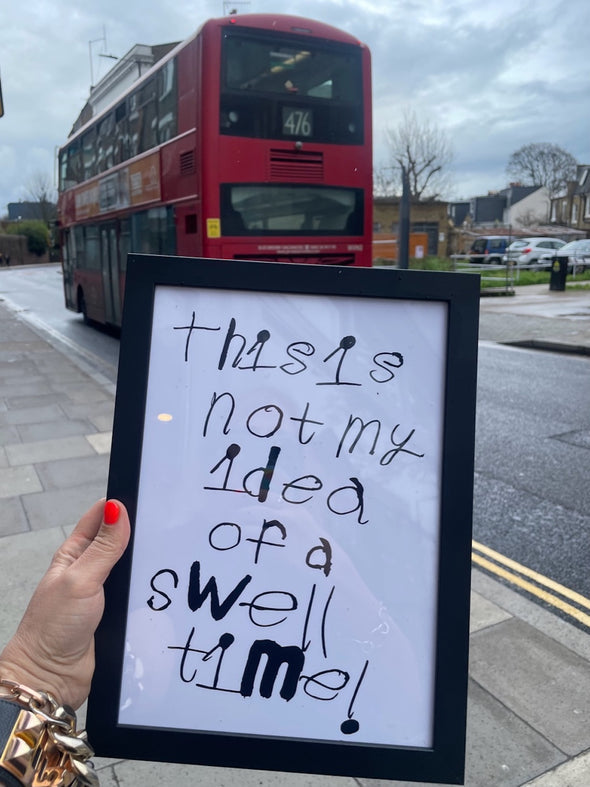 476
this is
not my
idea
of a
swell
time!